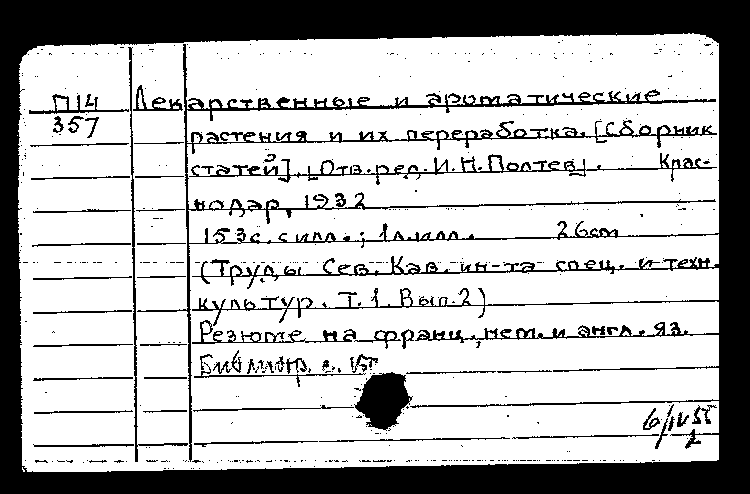 П14 Лекарственные и ароматические
357 растения и их переработка. [Сборник
статей]. [Отв. ред. И.Н. Полтев]. Крас-
нодар, 1932
153с. с илл.; 1л.илл. 26cm
(Труды Сев. Кав. ин-та спец. и техн.
культур. Т.1. Вып.2)
Резюме на франц., нем. и англ. яз.
Библиогр. с.
6/IV 55